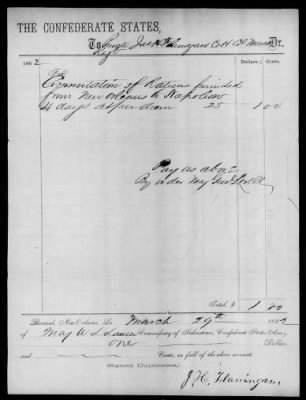 THE CONFEDERATE STATES,
To Jack Co H Dr.
1862. Dollars. Cents.
For
Commutation of Rations furnished
from New Orleans to Napoleon
4 days at per diem 25 1 00
Pay as above
By order Maj Genl Lovell
Total, $ 1 00
Received, New Orleans, La March 29th 1862
of Maj A L Commissary of Subsistence, Confederate States Army,
One Dollars
and Cents, in full of the above account.
(Signed Duplicates.)
J. H. Flaningam